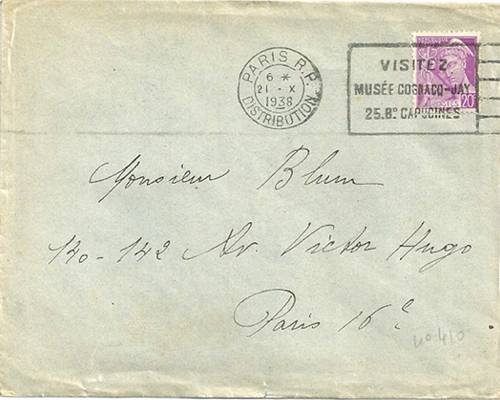 PARIS R.P.
6 *
21 - X
1938
DISTRIBUTION
VISITEZ
MUSÉE COGNACQ-JAY
25.Bᴰ CAPUCINES
20
Monsieur Blum
140-142 Av. Victor Hugo
Paris 16e
no 410